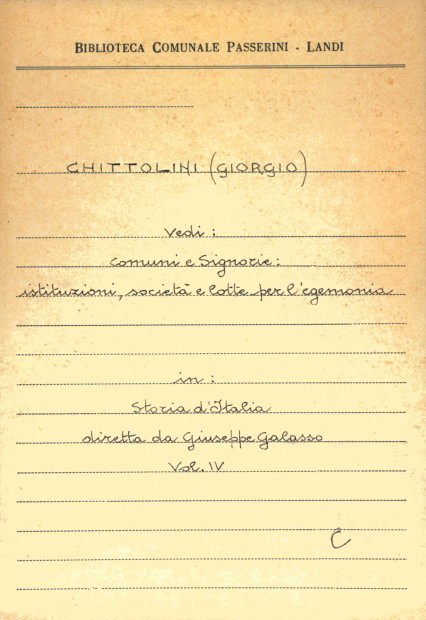 BIBLIOTECA COMUNALE PASSERINI - LANDI
CHITTOLINI (GIORGIO)
Vedi:
Comuni e Signorie:
istituzioni, società e lotte per l'egemonia
in:
Storia d'Italia
diretta da Giuseppe Galasso
Vol. IV
C